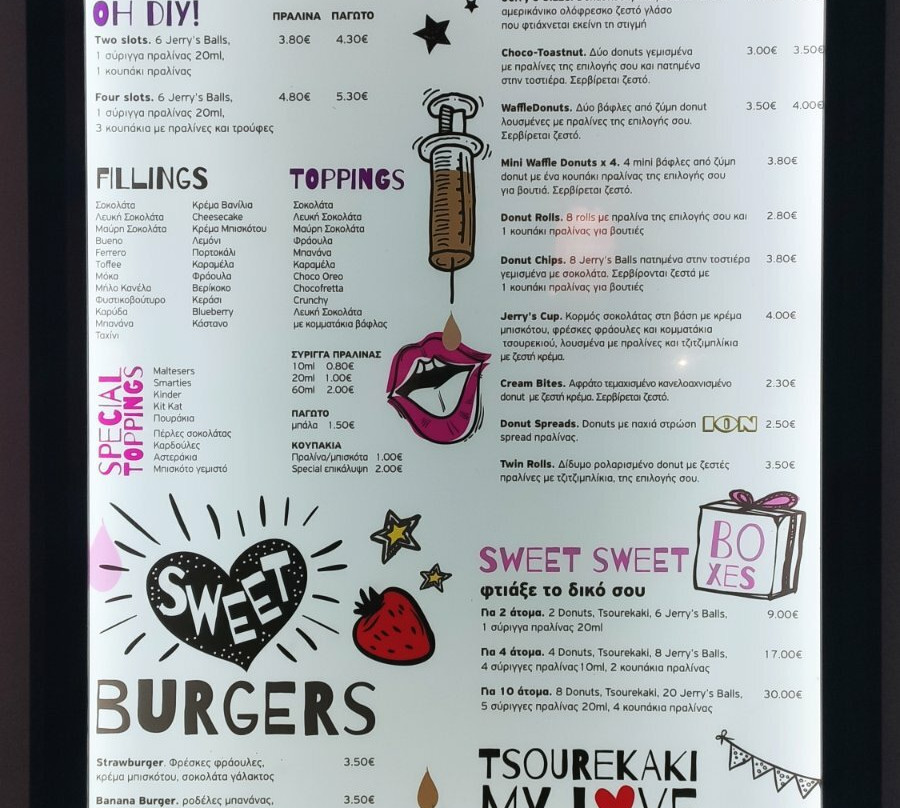 OH DIY!
ΠΡΑΛΙΝΑ ΠΑΓΩΤΟ
Two slots. 6 Jerry's Balls, 3.80€ 4.30€
1 σύριγγα πραλίνας 20ml,
1 κουπάκι πραλίνας
Four slots. 6 Jerry's Balls, 4.80€ 5.30€
1 σύριγγα πραλίνας 20ml,
3 κουπάκια με πραλίνες και τρούφες
FILLINGS
Σοκολάτα
Λευκή Σοκολάτα
Μαύρη Σοκολάτα
Bueno
Ferrero
Toffee
Μόκα
Μήλο Κανέλα
Φυστικοβούτυρο
Καρύδα
Μπανάνα
Ταχίνι
Κρέμα Βανίλια
Cheesecake
Κρέμα Μπισκότου
Λεμόνι
Πορτοκάλι
Καραμέλα
Φράουλα
Βερίκοκο
Κεράσι
Blueberry
Κάστανο
TOPPINGS
Σοκολάτα
Λευκή Σοκολάτα
Μαύρη Σοκολάτα
Φράουλα
Μπανάνα
Καραμέλα
Choco Oreo
Chocofretta
Crunchy
Λευκή Σοκολάτα
με κομματάκια βάφλας
SPECIAL
TOPPINGS
Maltesers
Smarties
Kinder
Kit Kat
Πουράκια
Πέρλες σοκολάτας
Καρδούλες
Αστεράκια
Μπισκότο γεμιστό
ΣΥΡΙΓΓΑ ΠΡΑΛΙΝΑΣ
10ml 0.80€
20ml 1.00€
60ml 2.00€
ΠΑΓΩΤΟ
μπάλα 1.50€
ΚΟΥΠΑΚΙΑ
Πραλίνα/μπισκότα 1.00€
Special επικάλυψη 2.00€
SWEET
BURGERS
Strawburger. Φρέσκες φράουλες, 3.50€
κρέμα μπισκότου, σοκολάτα γάλακτος
Banana Burger. ροδέλες μπανάνας, 3.50€
αμερικάνικο ολόφρεσκο ζεστό γλάσο
που φτιάχνεται εκείνη τη στιγμή
Choco-Toastnut. Δύο donuts γεμισμένα 3.00€ 3.50€
με πραλίνες της επιλογής σου και πατημένα
στην τοστιέρα. Σερβίρεται ζεστό.
WaffleDonuts. Δύο βάφλες από ζύμη donut 3.50€ 4.00€
λουσμένες με πραλίνες της επιλογής σου.
Σερβίρεται ζεστό.
Mini Waffle Donuts x 4. 4 mini βάφλες από ζύμη 3.80€
donut με ένα κουπάκι πραλίνας της επιλογής σου
για βουτιά. Σερβίρεται ζεστό.
Donut Rolls. 8 rolls με πραλίνα της επιλογής σου και 2.80€
1 κουπάκι πραλίνας για βουτιές
Donut Chips. 8 Jerry's Balls πατημένα στην τοστιέρα 3.80€
γεμισμένα με σοκολάτα. Σερβίρονται ζεστά με
1 κουπάκι πραλίνας για βουτιές
Jerry's Cup. Κορμός σοκολάτας στη βάση με κρέμα 4.00€
μπισκότου, φρέσκες φράουλες και κομματάκια
τσουρεκιού, λουσμένα με πραλίνες και τζιτζιμπλίκια
με ζεστή κρέμα.
Cream Bites. Αφράτο τεμαχισμένο κανελοαχνισμένο 2.30€
donut με ζεστή κρέμα. Σερβίρεται ζεστό.
Donut Spreads. Donuts με παχιά στρώση ION 2.50€
spread πραλίνας.
Twin Rolls. Δίδυμο ρολαρισμένο donut με ζεστές 3.50€
πραλίνες με τζιτζιμπλίκια, της επιλογής σου.
SWEET SWEET
BOXES
φτιάξε το δικό σου
Για 2 άτομα. 2 Donuts, Tsourekaki, 6 Jerry's Balls, 9.00€
1 σύριγγα πραλίνας 20ml
Για 4 άτομα. 4 Donuts, Tsourekaki, 8 Jerry's Balls, 17.00€
4 σύριγγες πραλίνας 10ml, 2 κουπάκια πραλίνας
Για 10 άτομα. 8 Donuts, Tsourekaki, 20 Jerry's Balls, 30.00€
5 σύριγγες πραλίνας 20ml, 4 κουπάκια πραλίνας
TSOUREKAKI
MY L♥VE